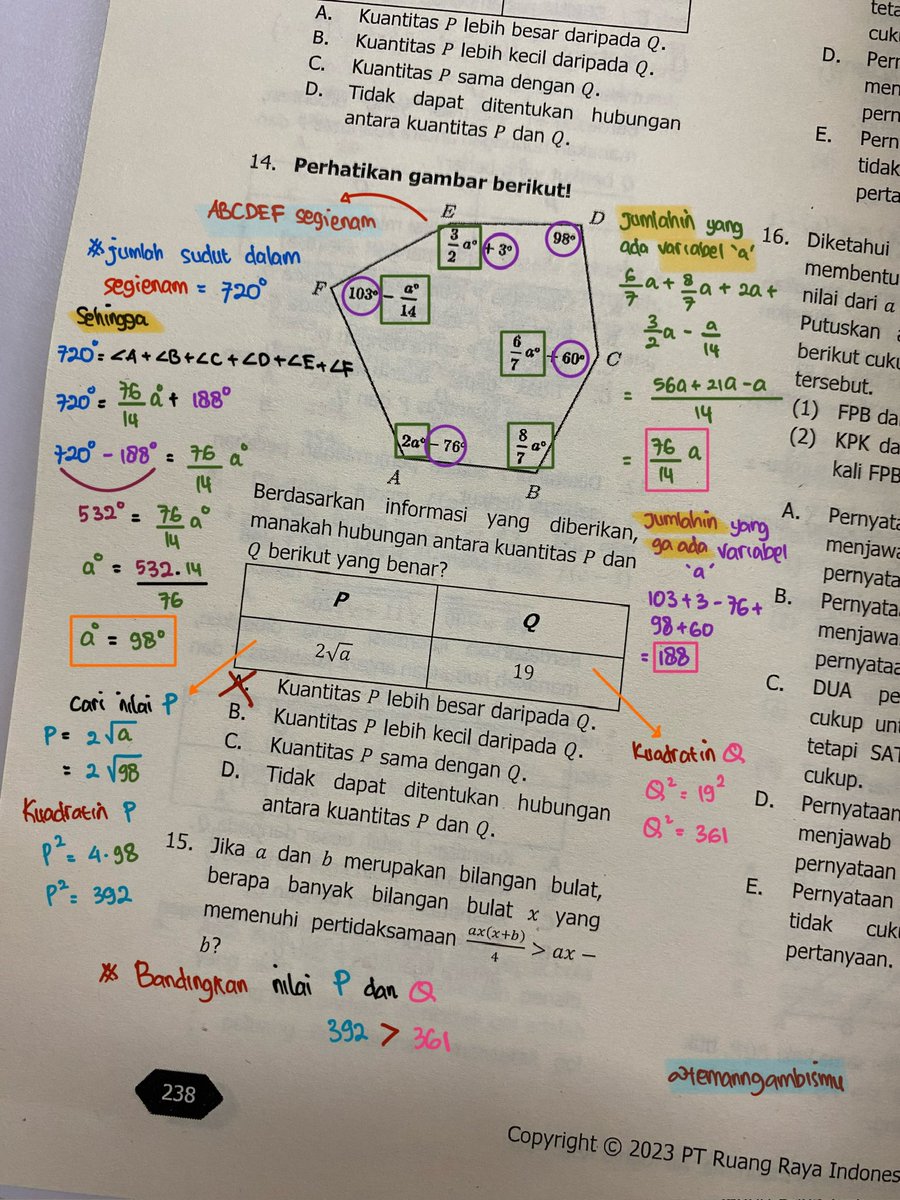 A. Kuantitas P lebih besar daripada Q.
B. Kuantitas P lebih kecil daripada Q.
C. Kuantitas P sama dengan Q.
D. Tidak dapat ditentukan hubungan
antara kuantitas P dan Q.
14. Perhatikan gambar berikut!
ABCDEF segienam
E
D
3/2 a° + 3°
98°
F
103° - a°/14
6/7 a° + 60°
C
2a° - 76°
8/7 a°
A
B
※ jumlah sudut dalam
segienam = 720°
Sehingga
720° = ∠A + ∠B + ∠C + ∠D + ∠E + ∠F
720° = 76/14 a° + 188°
720° - 188° = 76/14 a°
532° = 76/14 a°
a° = 532.14/76
a° = 98°
Jumlahin yang
ada variabel 'a'
6/7 a + 8/7 a + 2a +
3/2 a - a/14
= 56a + 21a - a/14
= 76/14 a
Jumlahin yang
ga ada variabel
'a'
103 + 3 - 76 +
98 + 60
= 188
Berdasarkan informasi yang diberikan,
manakah hubungan antara kuantitas P dan
Q berikut yang benar?
P Q
2√a 19
A. Kuantitas P lebih besar daripada Q.
B. Kuantitas P lebih kecil daripada Q.
C. Kuantitas P sama dengan Q.
D. Tidak dapat ditentukan hubungan
antara kuantitas P dan Q.
Cari nilai P
P = 2√a
= 2√98
Kuadratin P
P² = 4.98
P² = 392
Kuadratin Q
Q² = 19²
Q² = 361
15. Jika a dan b merupakan bilangan bulat,
berapa banyak bilangan bulat x yang
memenuhi pertidaksamaan ax(x+b)/4 > ax −
b?
※ Bandingkan nilai P dan Q
392 > 361
@temanngambismu
238
Copyright © 2023 PT Ruang Raya Indones
teta
cuk
D. Pern
men
pern
E. Pern
tidak
perta
16. Diketahui
membentu
nilai dari a
Putuskan
berikut cuku
tersebut.
(1) FPB da
(2) KPK da
kali FPB
A. Pernyata
menjawa
pernyata
B. Pernyata
menjawa
pernyataa
C. DUA pe
cukup unt
tetapi SAT
cukup.
D. Pernyataan
menjawab
pernyataan
E. Pernyataan
tidak cuku
pertanyaan.